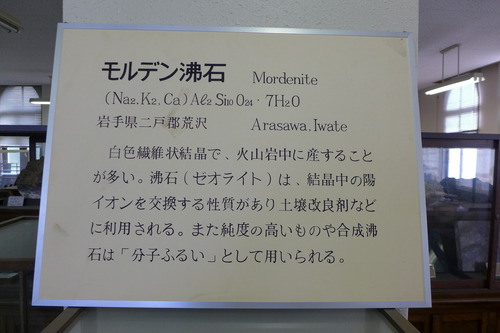 モルデン沸石 Mordenite
(Na2.K2.Ca)Al2Si10O24・7H2O
岩手県二戸郡荒沢 Arasawa.Iwate
白色繊維状結晶で、火山岩中に産すること
が多い。沸石(ゼオライト)は、結晶中の陽
イオンを交換する性質があり土壌改良剤など
に利用される。また純度の高いものや合成沸
石は「分子ふるい」として用いられる。